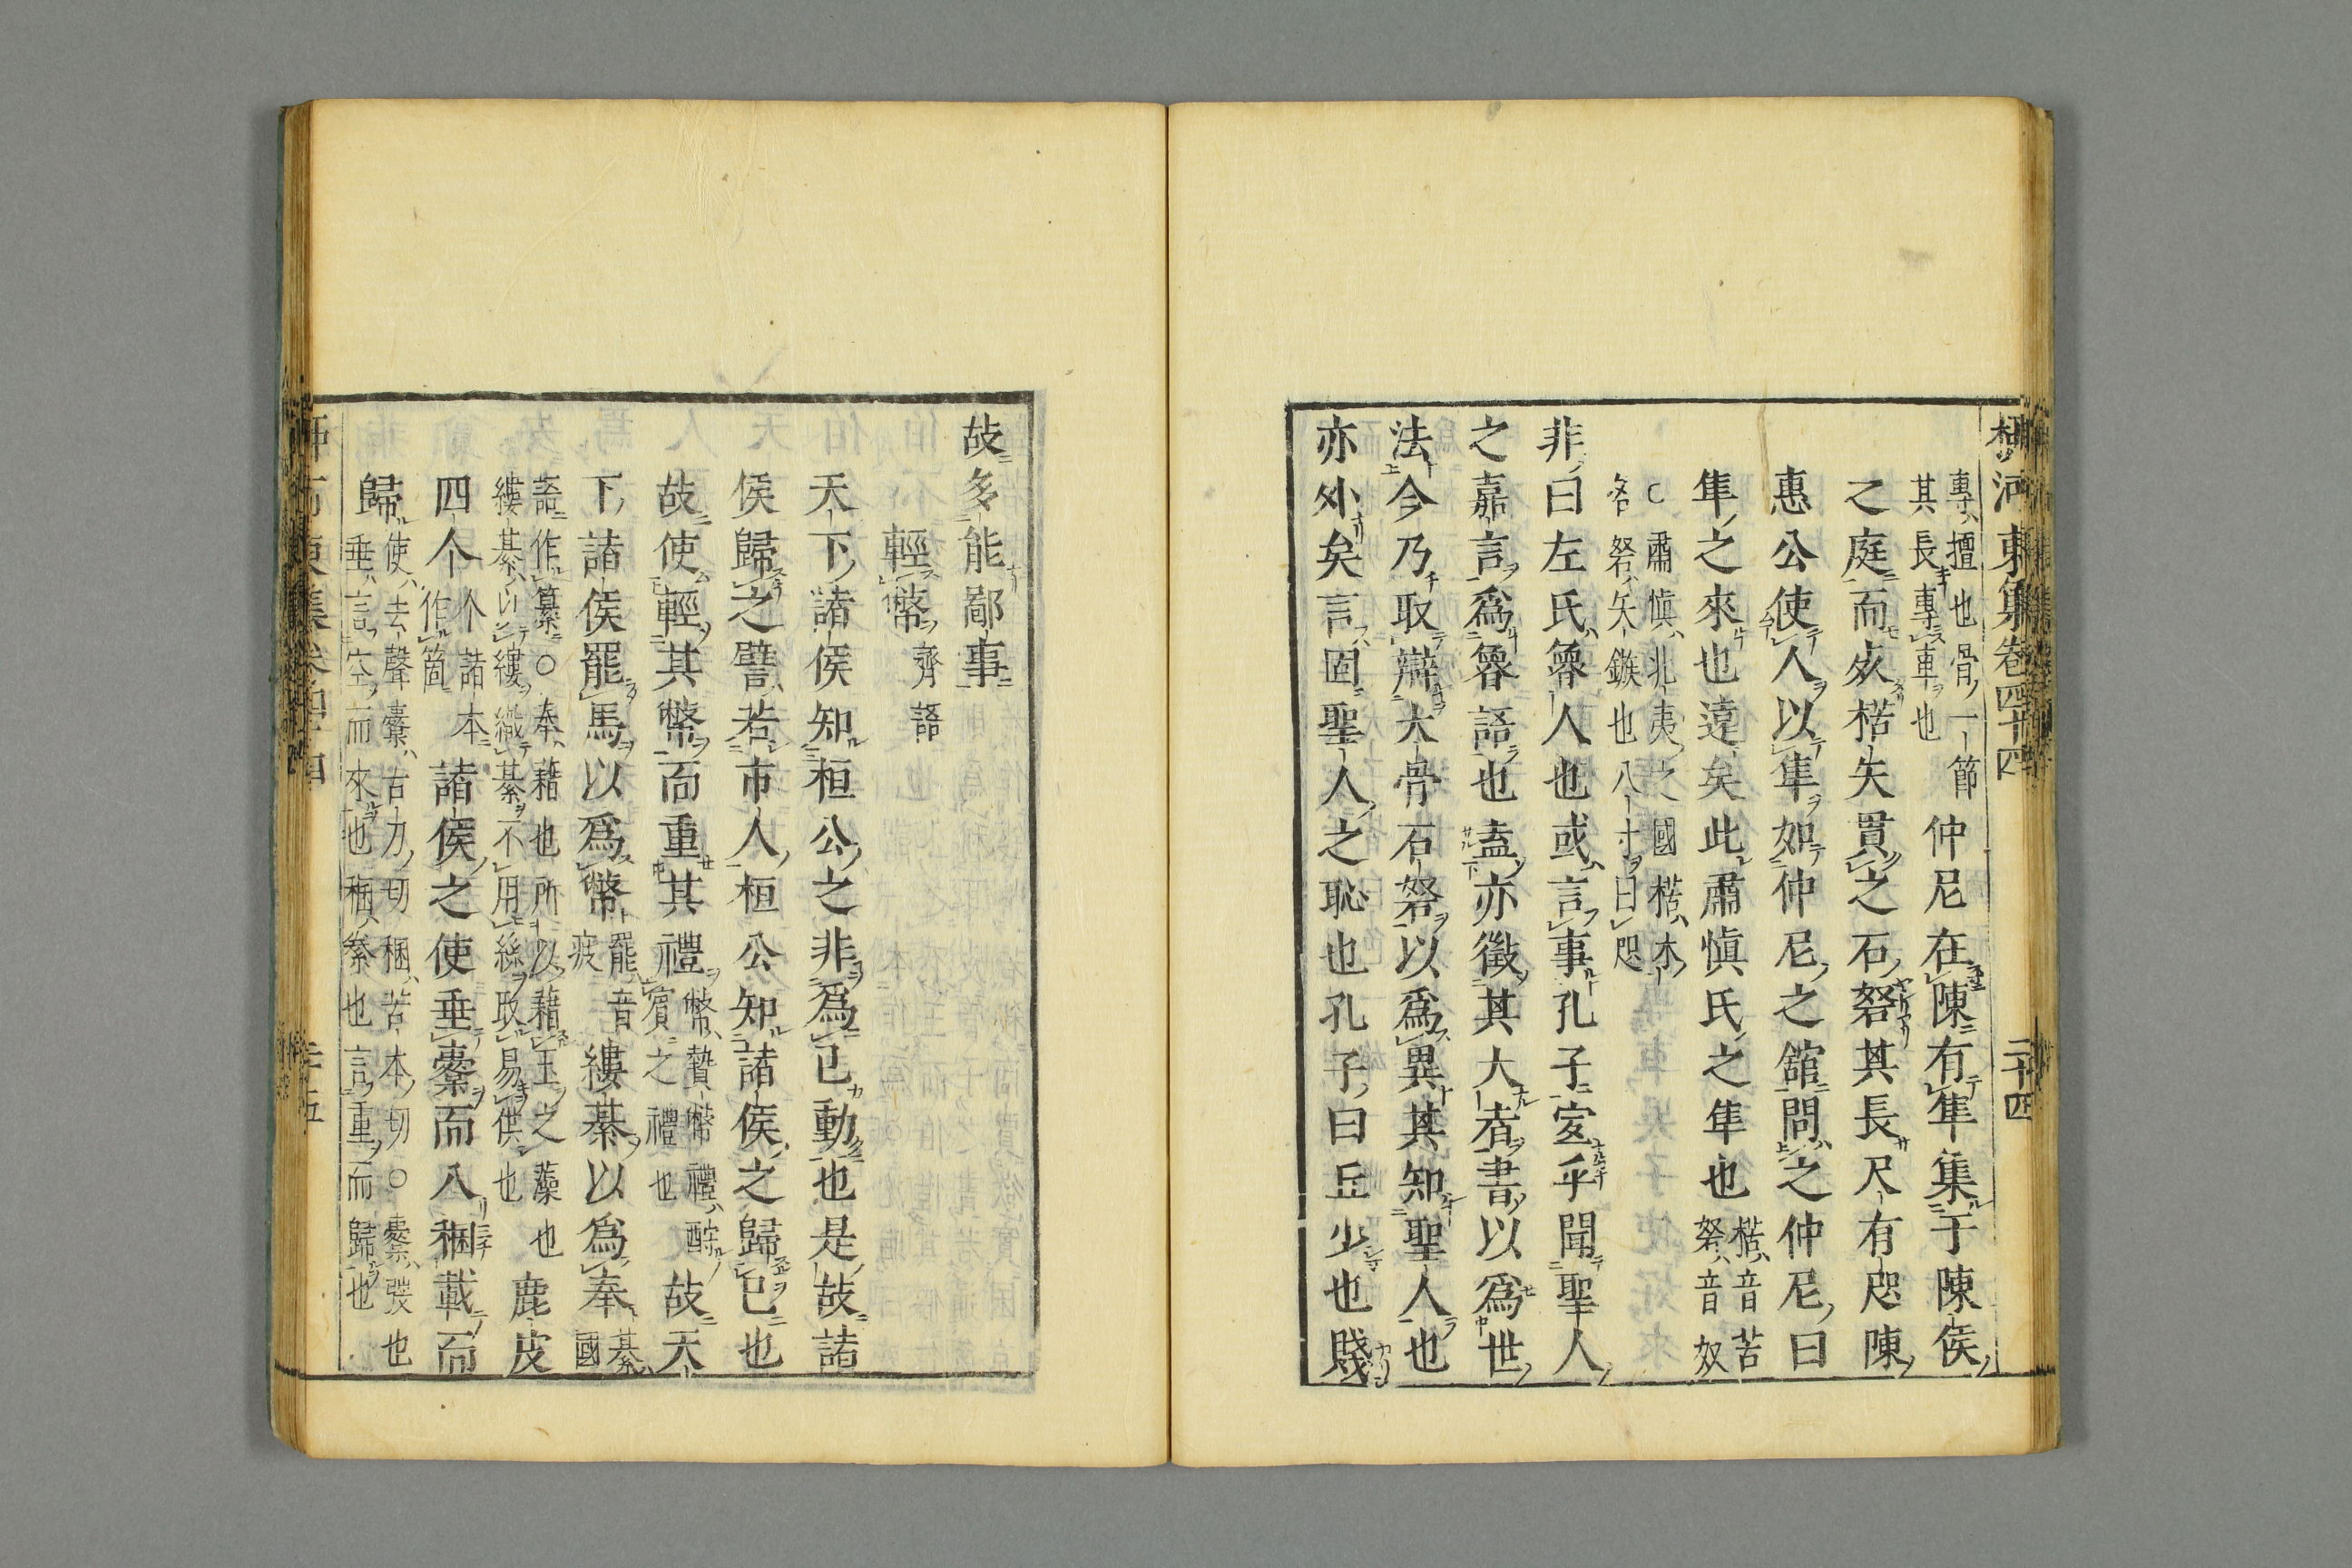 河東集卷四十四
二十四
專擅也骨一節
其長專車也
仲尼在陳有隼集于陳侯
之庭而死楛矢貫之石砮其長尺有咫陳
惠公使人以隼如仲尼之舘問之仲尼曰
隼之來也遠矣此肅愼氏之隼也
楛音苦
砮音奴
○肅愼北夷之國楛木
名砮矢鏃也八寸曰咫
非曰左氏魯人也或言事孔子宜乎聞聖人
之嘉言爲魯語也盍亦徵其大者書以爲世
法今乃取辯大骨石砮以爲異其知聖人也
亦外矣言固聖人之恥也孔子曰丘少也賤
故多能鄙事
輕幣
齊語
天下諸侯知桓公之非爲己動也是故諸
侯歸之譬若市人桓公知諸侯之歸己也
故使輕其幣而重其禮
幣贄幣禮酢
賓之禮也
故天
下諸侯罷馬以爲幣
罷音
疲
縷綦以爲奉
綦國
語作纂○奉藉也所以藉玉之藻也
縷綦以縷織綦不用絲取易供也
鹿皮
四个
个諸本
作箇
諸侯之使垂櫜而入稛載而
歸
使去聲櫜古刀切稛苦本切○櫜弢也
垂言空而來也稛絭也言重而歸也
河東集卷四十四
二十五